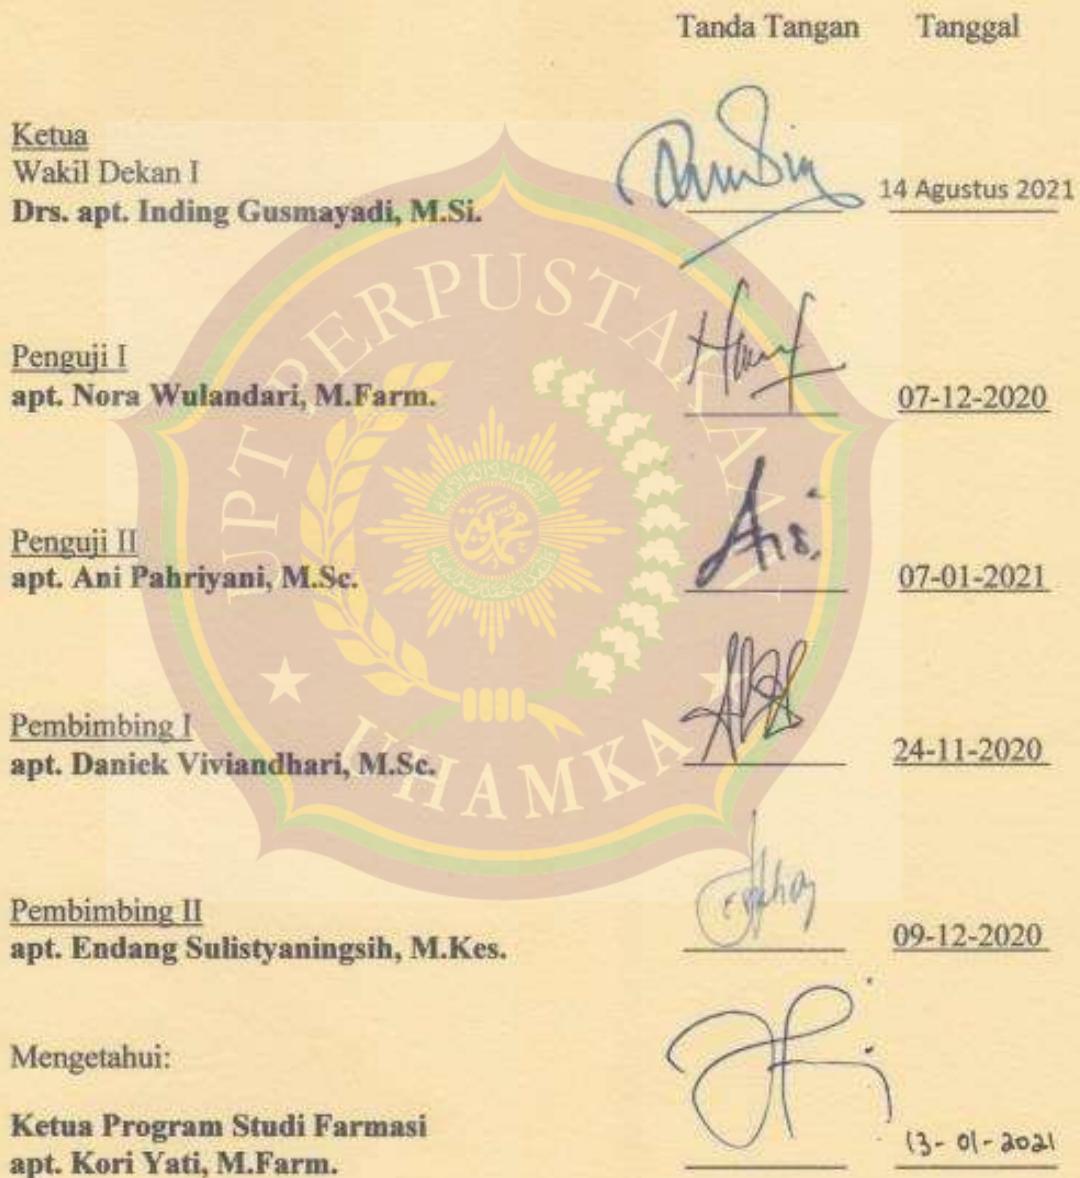 Tanda Tangan Tanggal
Ketua
Wakil Dekan I
Drs. apt. Inding Gusmayadi, M.Si. 14 Agustus 2021
Penguji I
apt. Nora Wulandari, M.Farm. 07-12-2020
Penguji II
apt. Ani Pahriyani, M.Sc. 07-01-2021
Pembimbing I
apt. Daniek Viviandhari, M.Sc. 24-11-2020
Pembimbing II
apt. Endang Sulistyaningsih, M.Kes. 09-12-2020
Mengetahui:
Ketua Program Studi Farmasi
apt. Kori Yati, M.Farm. 13-01-2021
UPT PERPUSTAKAAN
UHAMKA